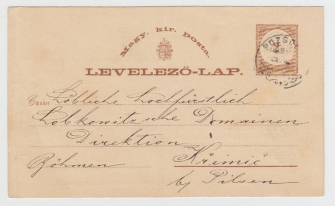 Magy. kir. posta.
LEVELEZŐ-LAP.
Czim:
Löbliche hochfürstlich
Lobkowitz'sche Domainen
Direktion
Křimić
Böhmen
by Pilsen
POZSO